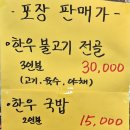 - 포장 판매가 -
•한우 불고기 전골
3인분 30,000
(고기, 육수, 야채)
•한우 국밥
2인분 15,000